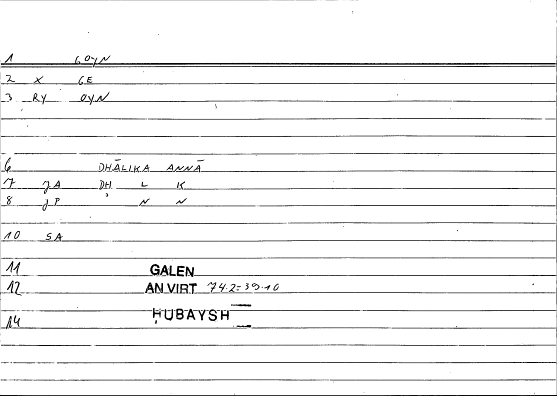 1 GOYN
2 X GE
3 RY OYN
6 DHĀLIKA ANNĀ
7 JA DH L K
8 JP N N
10 SA
11 GALEN
12 AN VIRT 74.2=39.10
14 HUBAYSH